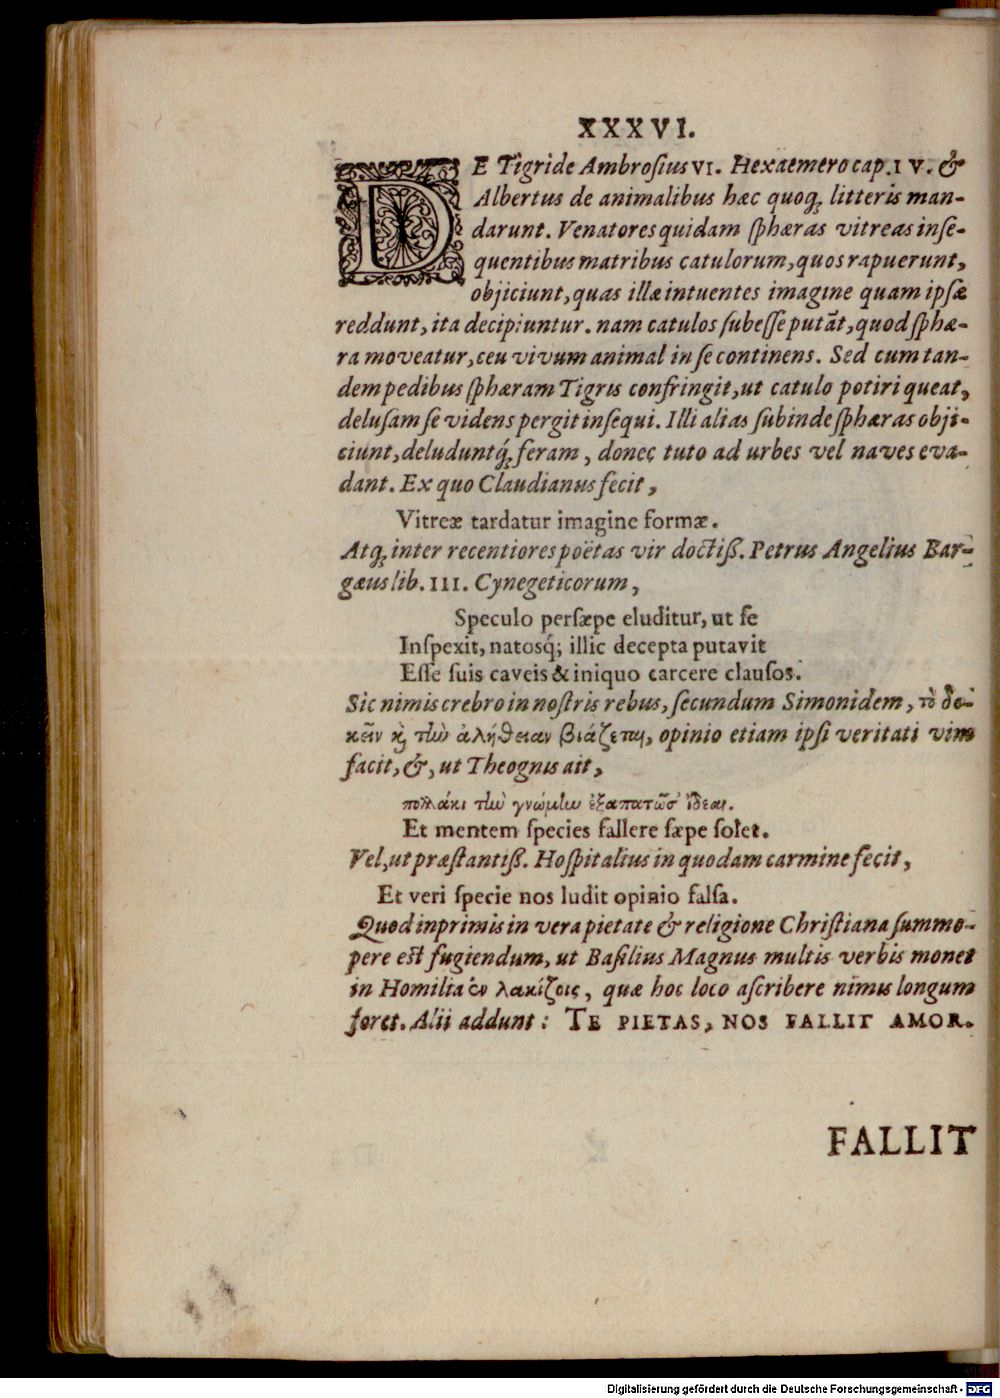 XXXVI.
DE Tigride Ambrosius VI. Hexaemero cap. IV. &
Albertus de animalibus hæc quoq; litteris man-
darunt. Venatores quidam sphæras vitreas inse-
quentibus matribus catulorum, quos rapuerunt,
objiciunt, quas illæ intuentes imagine quam ipsæ
reddunt, ita decipiuntur. nam catulos subesse putãt, quod sphæ-
ra moveatur, ceu vivum animal in se continens. Sed cum tan-
dem pedibus sphæram Tigris confringit, ut catulo potiri queat,
delusam se videns pergit insequi. Illi alias subinde sphæras obji-
ciunt, deluduntq́; feram, donec tuto ad urbes vel naves eva-
dant. Ex quo Claudianus fecit,
Vitreæ tardatur imagine formæ.
Atq; inter recentiores poëtas vir doctiß. Petrus Angelius Bar-
gæus lib. III. Cynegeticorum,
Speculo persæpe eluditur, ut se
Inspexit, natosq́; illic decepta putavit
Esse suis caveis & iniquo carcere clausos.
Sic nimis crebro in nostris rebus, secundum Simonidem, τὸ δο-
κεῖν κỳ τὴν ἀλήθειαν βιάζεται, opinio etiam ipsi veritati vim
facit, &, ut Theognis ait,
πολλάκι τὴν γνώμην ἐξαπατῶσ' ἰδέαι.
Et mentem species fallere sæpe solet.
Vel, ut præstantiß. Hospitalius in quodam carmine fecit,
Et veri specie nos ludit opinio falsa.
Quod inprimis in vera pietate & religione Christiana summo-
pere est fugiendum, ut Basilius Magnus multis verbis monet
in Homilia ἐν λακίζοις, quæ hoc loco ascribere nimis longum
foret. Alii addunt: TE PIETAS, NOS FALLIT AMOR.
FALLIT
Digitalisierung gefördert durch die Deutsche Forschungsgemeinschaft - DFG